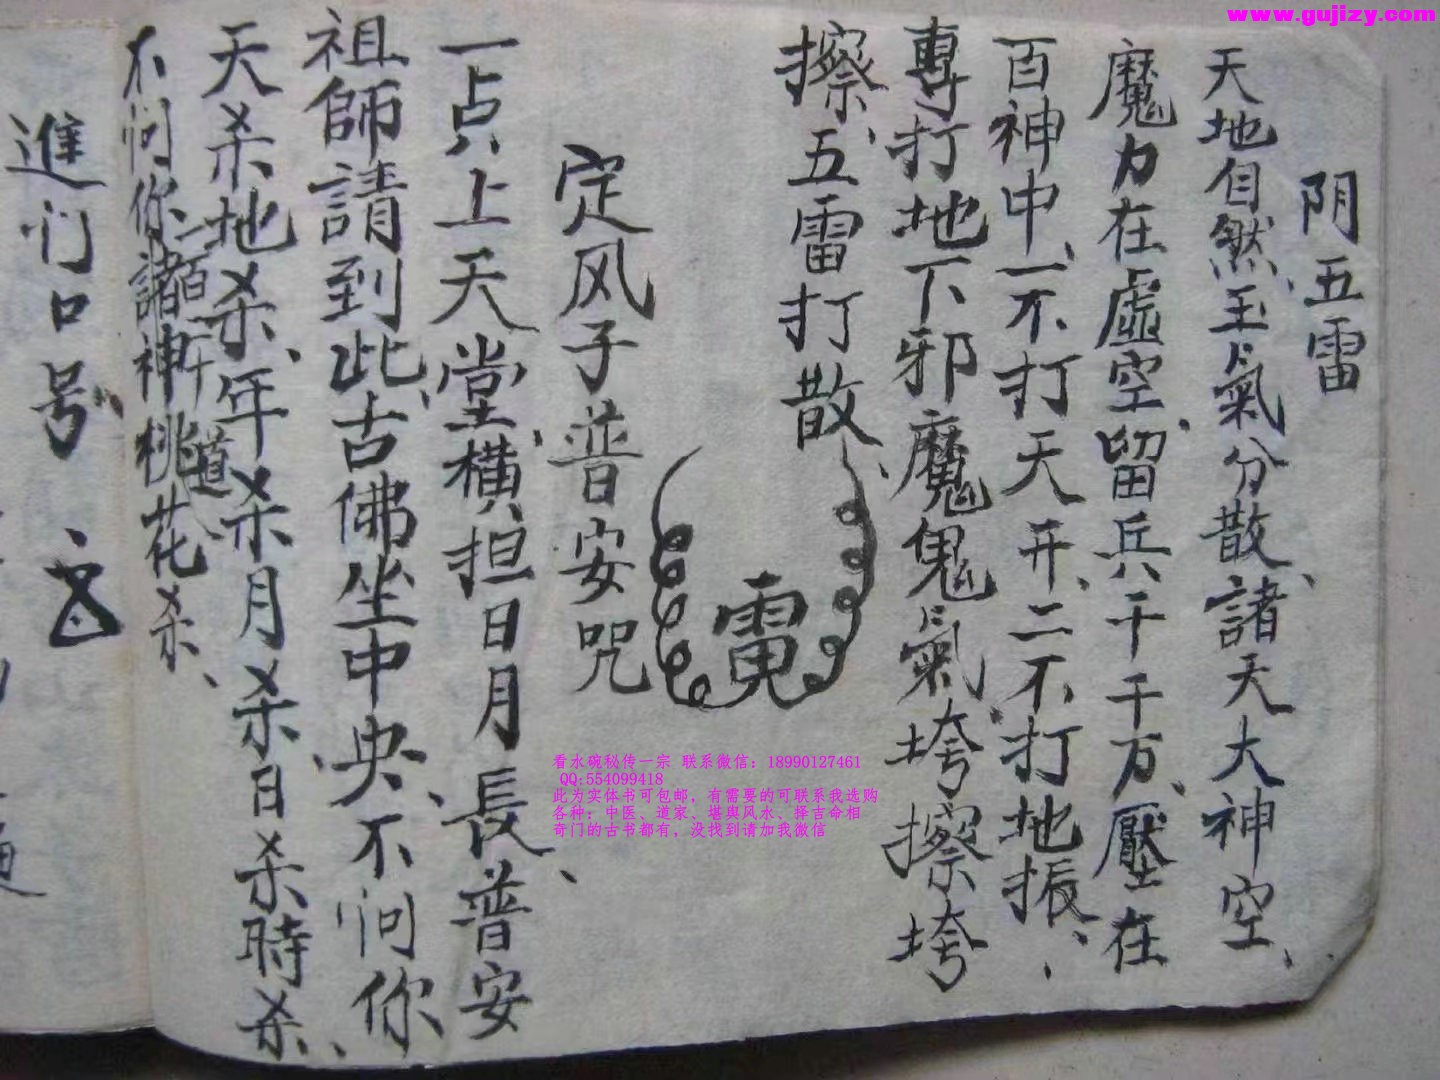 www.gujizy.com
阴五雷
天地自然、玉氣分散、諸天大神空、
魔力在虛空、留兵千千万、壓在
百神中、一不打天开、二不打地振、
專打地下邪魔鬼氣、垮擦垮
擦、五雷打散、
雷
定风子普安咒
一点上天堂、横担日月長、普安
祖師請到此、古佛坐中央、不问你
天杀地杀、年杀月杀、日杀時杀、
不问你一百二十道
諸神桃花杀、
進门口号
看水碗秘传一宗 联系微信：18990127461
QQ:554099418
此为实体书可包邮，有需要的可联系我选购
各种：中医、道家、堪舆风水、择吉命相
奇门的古书都有，没找到请加我微信